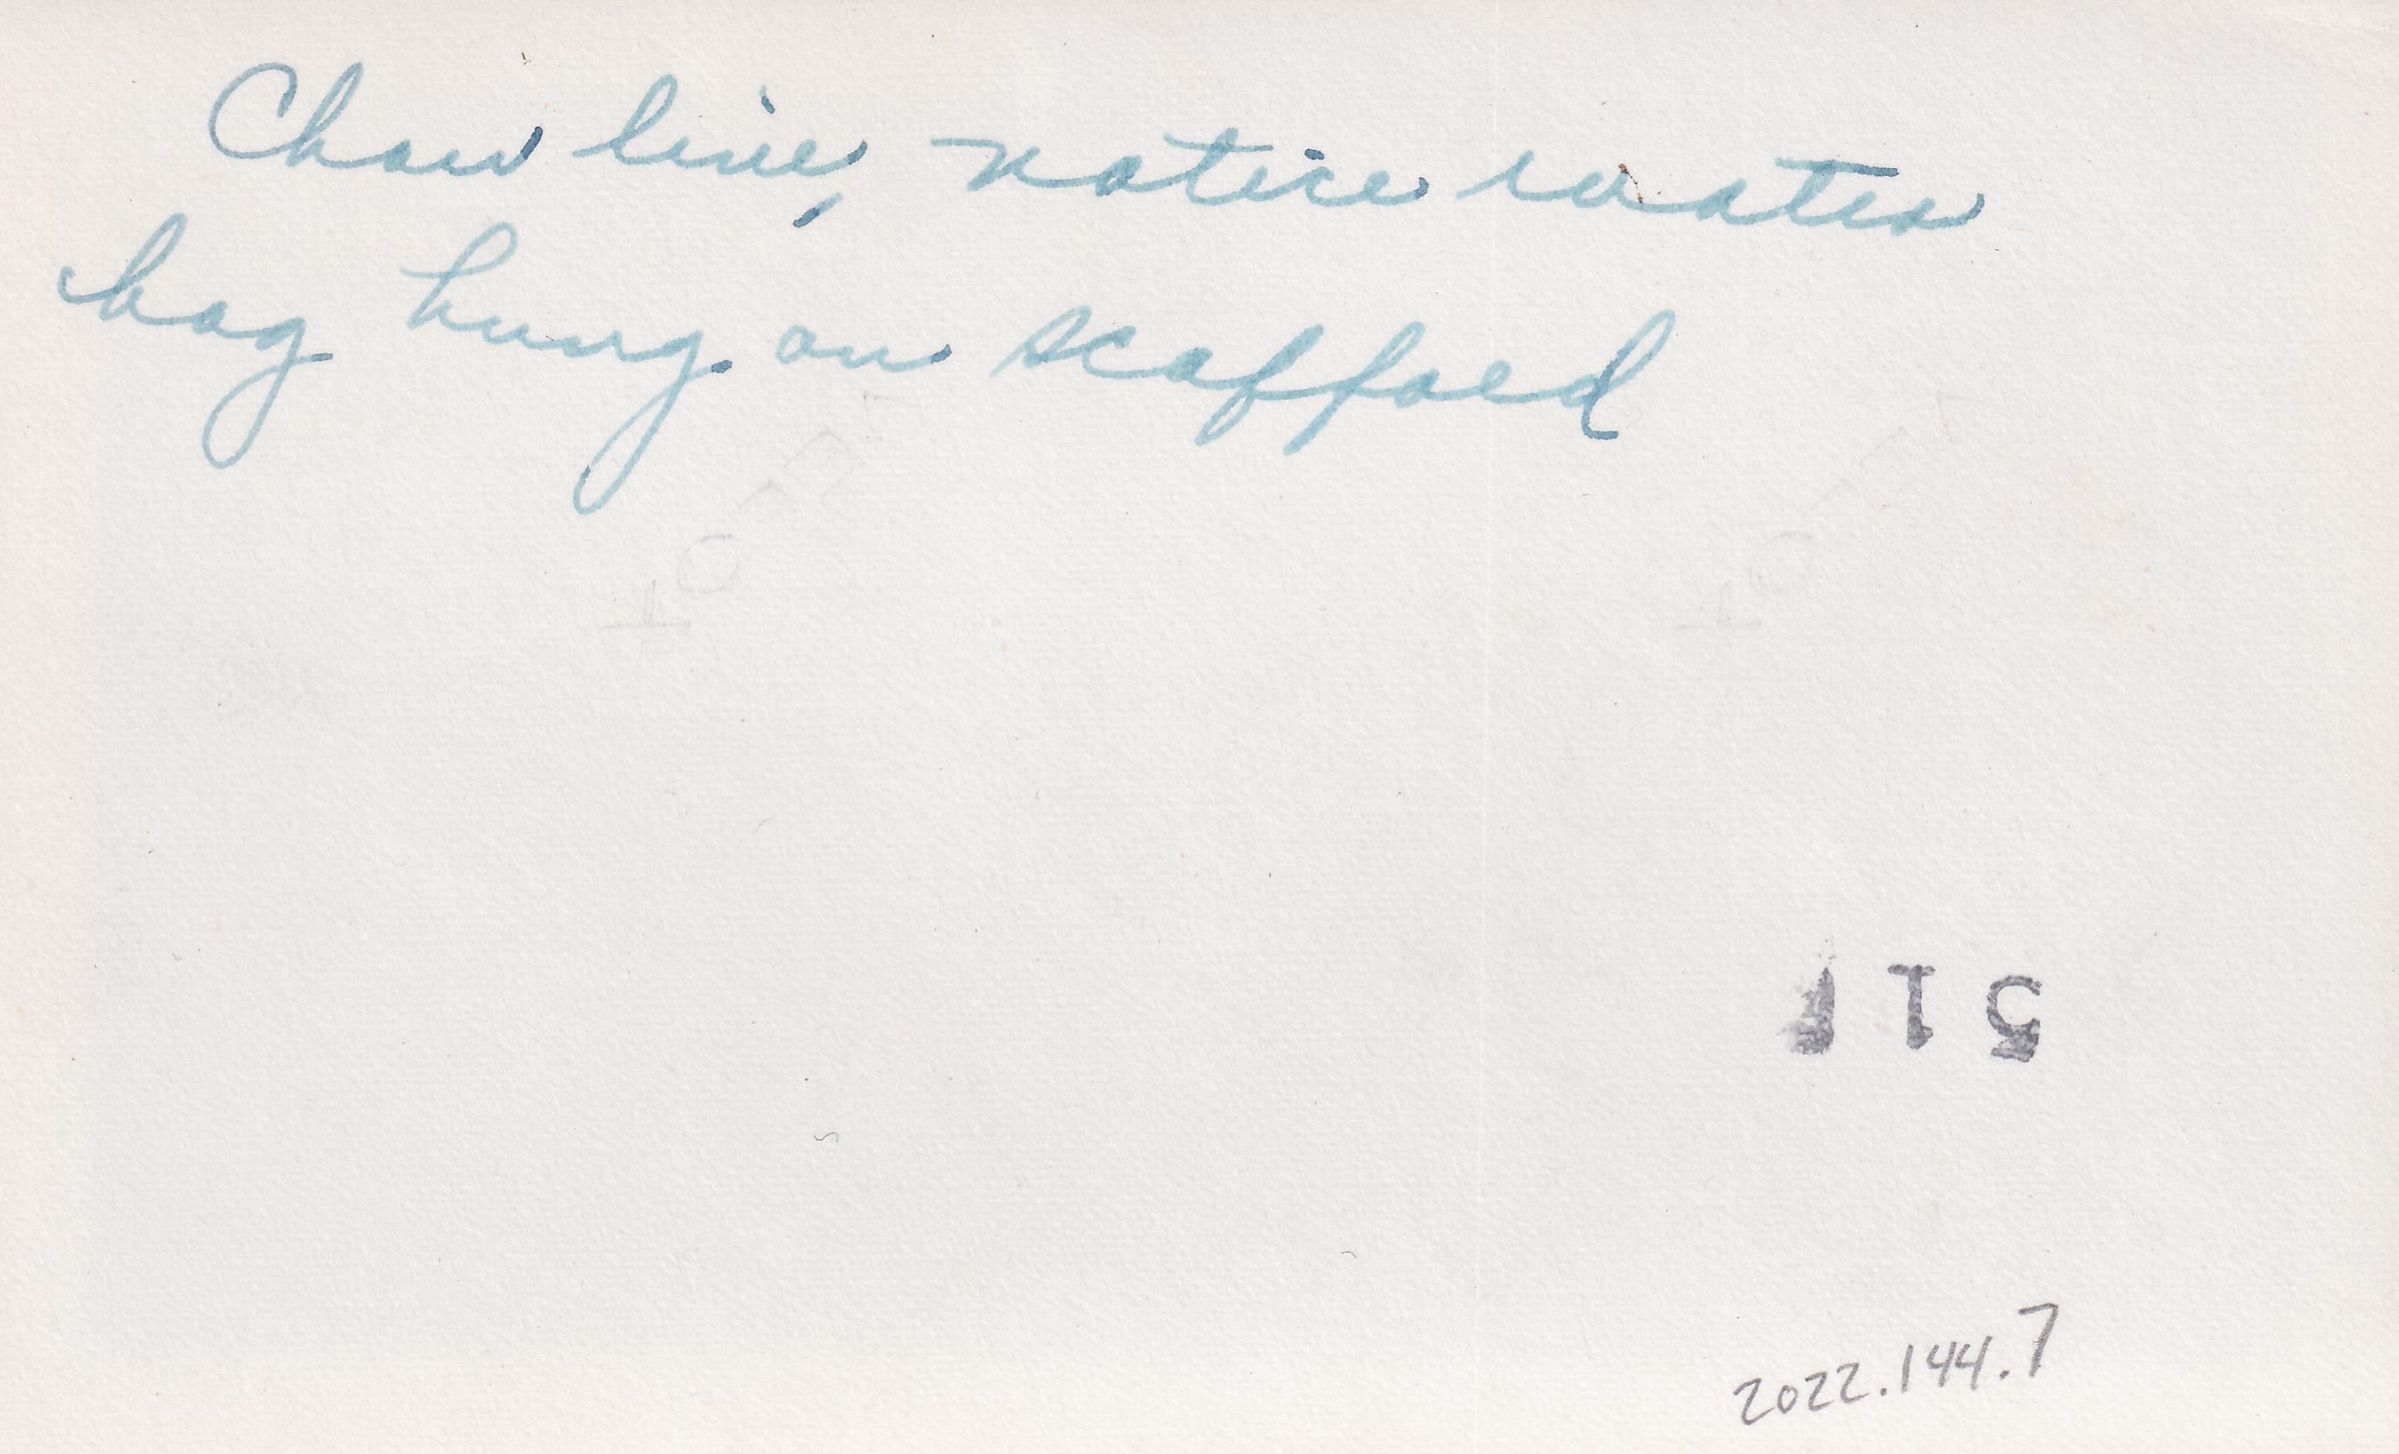 Chow line, notice water
bag hung on scaffold
2022.144.7